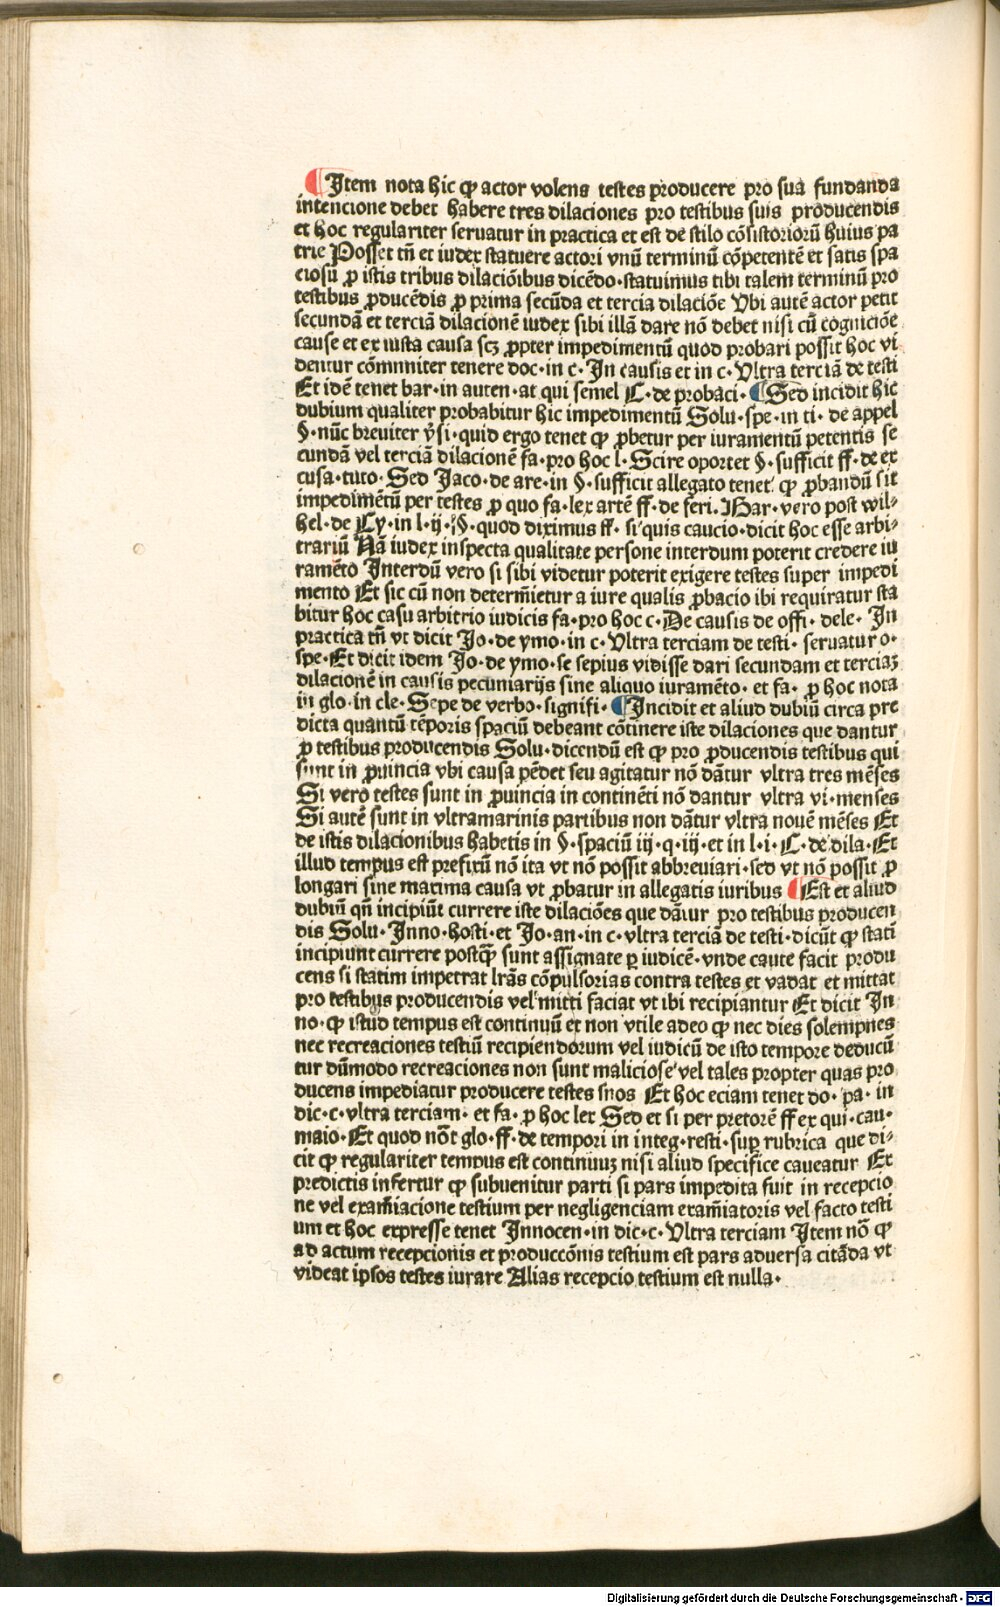 ¶Item nota hic ꝙ actor volens testes producere pro sua fundanda
intencione debet habere tres dilaciones pro testibus suis producendis
et hoc regulariter seruatur in practica et est de stilo cõsistoriorũ huius pa
trie Posset tñ et iudex statuere actori vnũ terminũ cõpetentẽ et satis spa
ciosũ ꝓ istis tribus dilaciõibus dicẽdo·statuimus tibi talem terminũ pro
testibus ꝓducẽdis ꝓ prima secũda et tercia dilaciõe Vbi autẽ actor petit
secundã et terciã dilacionẽ iudex sibi illã dare nõ debet nisi cũ cogniciõe
cause et ex iusta causa scꝫ ꝓpter impedimentũ quod probari possit hoc vi
dentur cõmuniter tenere doc·in c·In causis et in c·Vltra terciã de testi
Et idẽ tenet bar·in auten·at qui semel C·de probaci·¶Sed incidit hic
dubium qualiter probabitur hic impedimentũ Solu·spe·in ti·de appel
§·nũc breuiter ꝟsi·quid ergo tenet ꝙ ꝓbetur per iuramentũ petentis se
cundã vel terciã dilacionẽ fa·pro hoc l·Scire oportet §·sufficit ff·de ex
cusa·tuto·Sed Jaco·de are·in §·sufficit allegato tenet ꝙ ꝓbandũ sit
impedimẽtũ per testes ꝓ quo fa·lex artẽ ff·de feri. Bar·vero post wil⸗
hel·de Cy·in l·ij·§·quod diximus ff·si quis caucio·dicit hoc esse arbi⸗
trariũ Nã iudex inspecta qualitate persone interdum poterit credere iu
ramẽto Interdũ vero si sibi videtur poterit exigere testes super impedi
mento Et sic cũ non determĩetur a iure qualis ꝓbacio ibi requiratur sta
bitur hoc casu arbitrio iudicis fa·pro hoc c·De causis de offi·dele·In
practica tñ vt dicit Jo·de ymo·in c·Vltra terciam de testi·seruatur o·
spe·Et dicit idem Jo·de ymo·se sepius vidisse dari secundam et terciaꝫ
dilacionẽ in causis pecuniarijs sine aliquo iuramẽto·et fa·ꝓ hoc nota
in glo·in cle·Sepe de verbo·signifi·¶Incidit et aliud dubiũ circa pre
dicta quantũ tẽporis spaciũ debeant cõtinere iste dilaciones que dantur
ꝓ testibus producendis Solu·dicendũ est ꝙ pro ꝓducendis testibus qui
sunt in ꝓuincia vbi causa pẽdet seu agitatur nõ dãtur vltra tres mẽses
Si vero testes sunt in ꝓuincia in continẽti nõ dantur vltra vi·menses
Si autẽ sunt in vltramarinis partibus non dãtur vltra nouẽ mẽses Et
de istis dilacionibus habetis in §·spaciũ iij·q·iij·et in l·i·C·de dila·Et
illud tempus est prefixũ nõ ita vt nõ possit abbreuiari·sed vt nõ possit ꝓ
longari sine maxima causa vt ꝓbatur in allegatis iuribus ¶Est et aliud
dubiũ qñ incipiũt currere iste dilaciões que dãtur pro testibus producen
dis Solu·Inno·hosti·et Jo·an·in c·vltra terciã de testi·dicũt ꝙ statĩ
incipiunt currere postꝙ̃ sunt assignate ꝑ iudicẽ·vnde caute facit produ
cens si statim impetrat lrãs cõpulsorias contra testes et vadat et mittat
pro testibus producendis vel mitti faciat vt ibi recipiantur Et dicit In
no·ꝙ istud tempus est continuũ et non vtile adeo ꝙ nec dies solempnes
nec recreaciones testiũ recipiendorum vel iudicũ de isto tempore deducũ
tur dũmodo recreaciones non sunt maliciose vel tales propter quas pro
ducens impediatur producere testes suos Et hoc eciam tenet do·pa·in
dic·c·vltra terciam·et fa·ꝓ hoc lex Sed et si per pretorẽ ff ex qui·cau·
maio·Et quod nõt glo·ff·de tempori in integ·resti·suꝑ rubrica que di⸗
cit ꝙ regulariter tempus est continuuꝫ nisi aliud specifice caueatur Et
predictis infertur ꝙ subuenitur parti si pars impedita fuit in recepcio
ne vel examĩacione testium per negligenciam examĩatoris vel facto testi
um et hoc expresse tenet Innocen·in dic·c·Vltra terciam Item nõ ꝙ
ad actum recepcionis et produccõnis testium est pars aduersa citãda vt
videat ipsos testes iurare Alias recepcio testium est nulla·
Digitalisierung gefördert durch die Deutsche Forschungsgemeinschaft - DFG